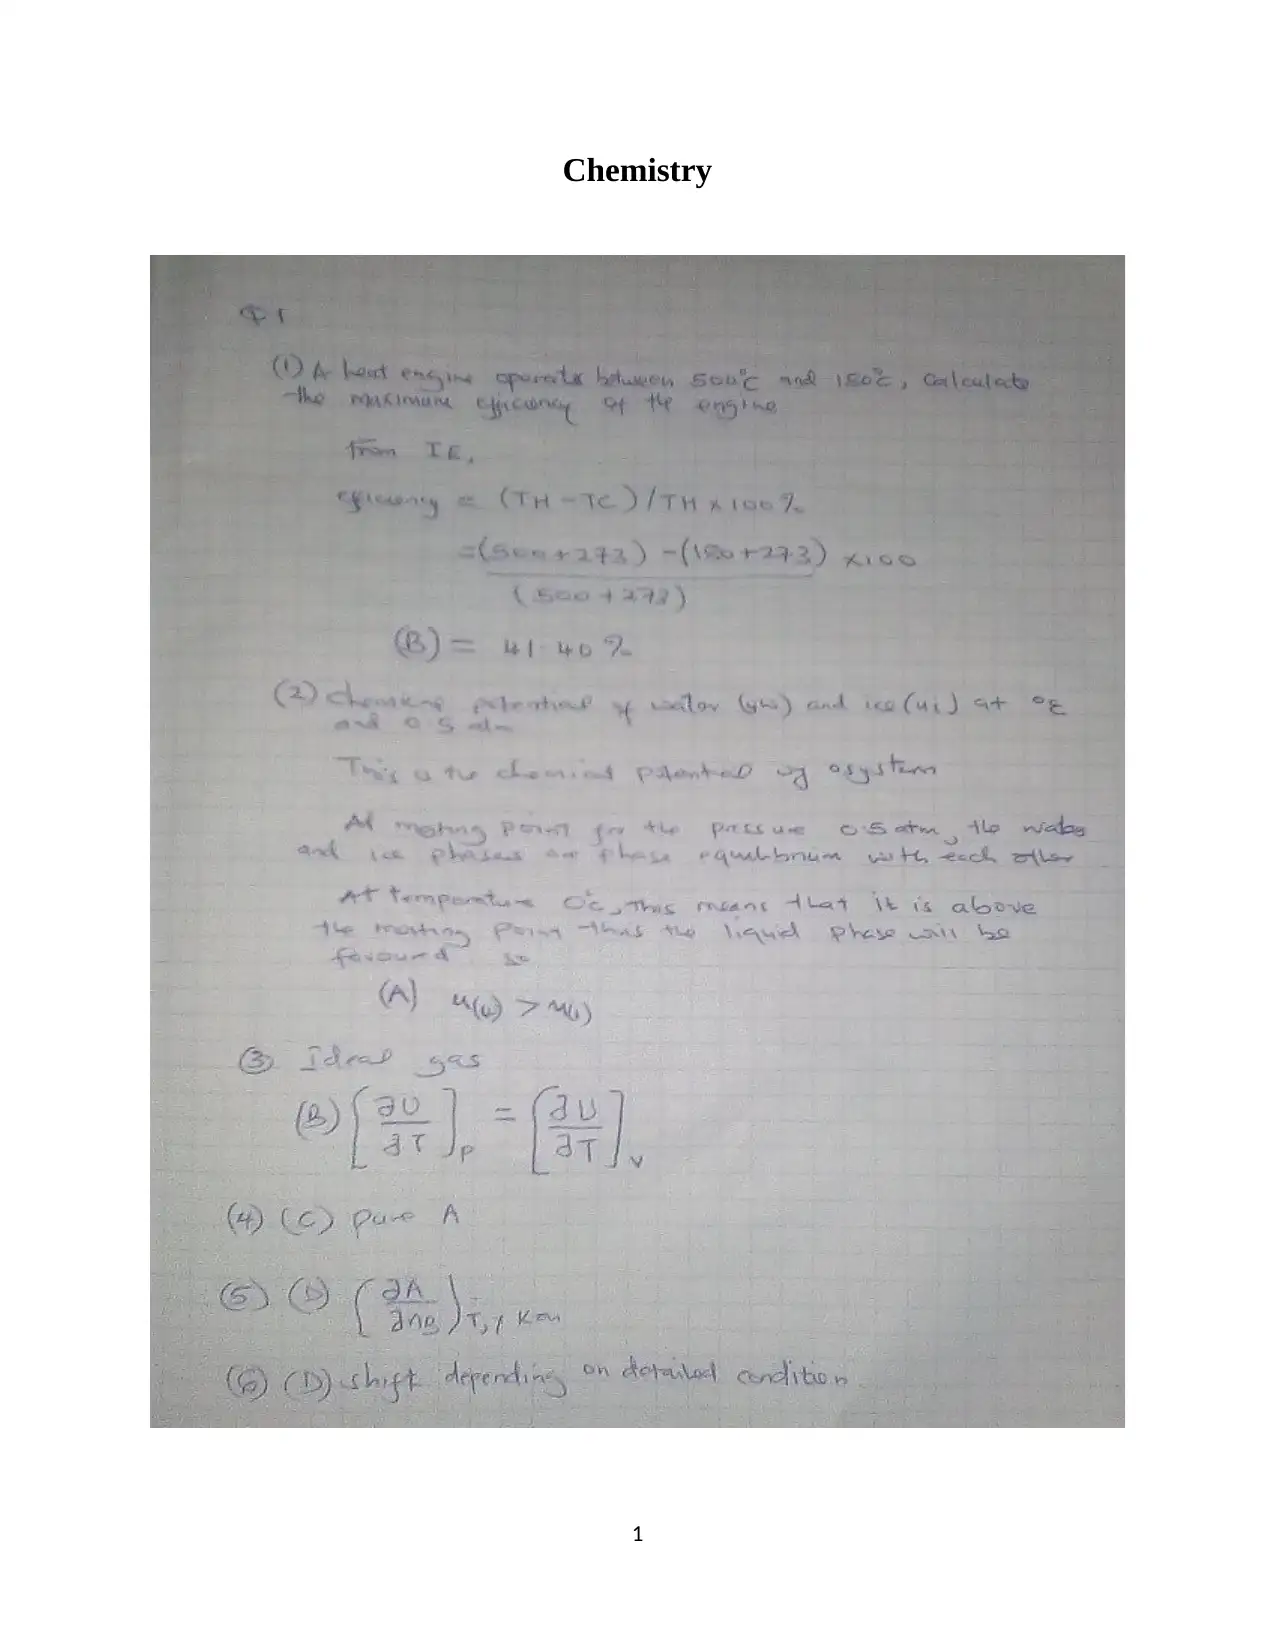 Chemistry
Q 1
(1) A heat engine operates between 500°C and 180°C, Calculate
the maximum efficiency of the engine
from IE,
efficiency = (TH - TC) / TH x 100%
=(500+273) -(180+273) x100
(500+273)
(B) = 41.40%
(2) potential of water (uw) and ice (ui) at
and 0.5 atm
This is the chemical potential
At melting point for the pressure 0.5 atm, the water
and ice phases are phase equilibrium with each other
At temperature 0°c, this means that it is above
the melting point thus the liquid phase will be
favoured so
(A) u(w) > u(i)
(3) Ideal gas
(B) [∂U/∂T]P = [∂U/∂T]V
(4) (C) pure A
(5) (D) (∂A/∂nB)
(6) (D) shift depending on detailed condition
1